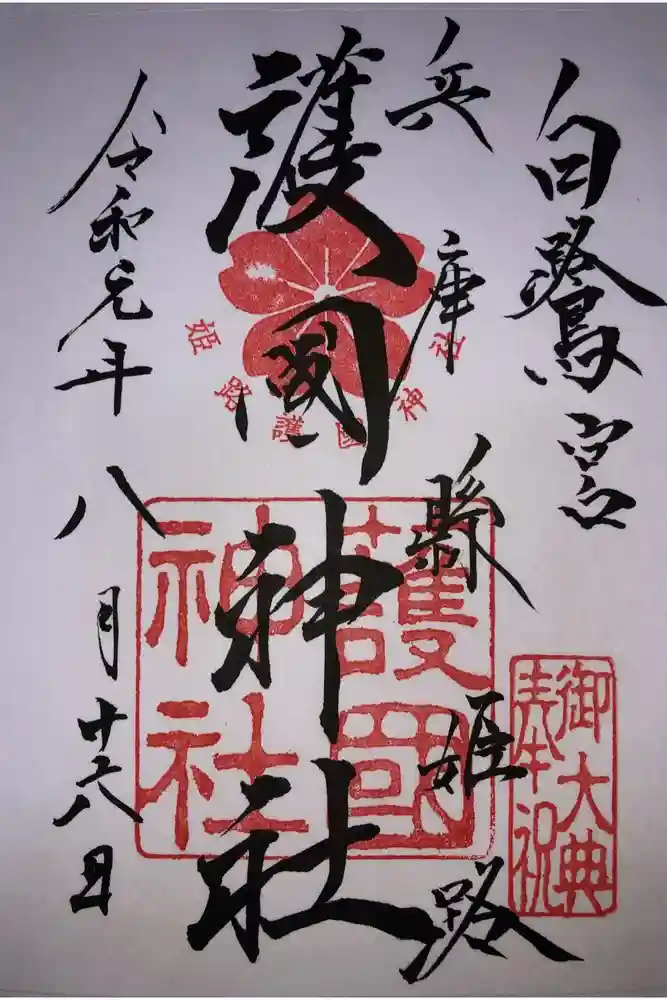 白鷺宮
兵庫縣姫路
護國神社
令和元年八月十六日
姫路護國神社
護國神社
御大典
奉祝